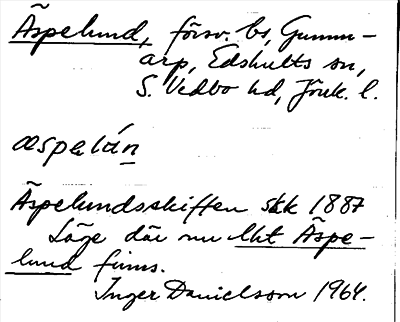 Äspelund, försv. bs, Gumm-
arp, Edshults sn,
S. Vedbo hd, Jönk. l.
æspelán
Äspelundsskiften skk 1887
Läge där nu lht Äspe-
lund finns.
Inger Danielsson 1964.